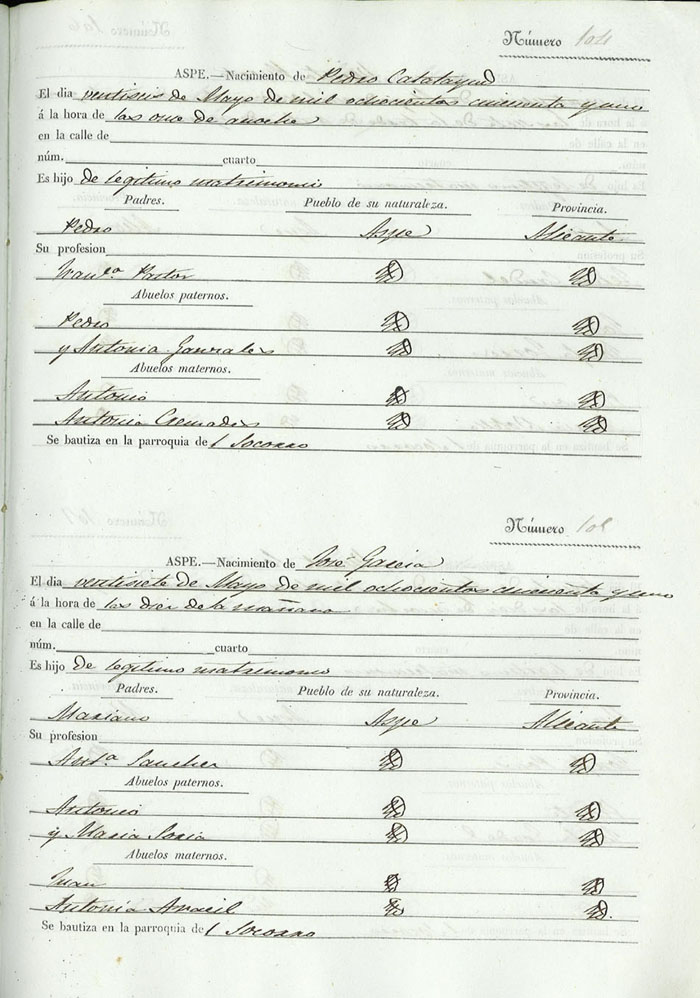 Número 104
ASPE.—Nacimiento de Pedro Calatayud
El dia ventiseis de Mayo de mil ochocientos cincuenta y uno
á la hora de las once de anoche
en la calle de
núm. cuarto
Es hijo de legitimo matrimonio
Padres. Pueblo de su naturaleza. Provincia.
Pedro Aspe Alicante
Su profesion
Fran.ca Pastor
Abuelos paternos.
Pedro
y Antonia Gonzales
Abuelos maternos.
Antonio
Antonia
Se bautiza en la parroquia del Socorro
Número 105
ASPE.—Nacimiento de José Garcia
El dia ventisiete de Mayo de mil ochocientos cincuenta y uno
á la hora de las diez de la mañana
en la calle de
núm. cuarto
Es hijo de legitimo matrimonio
Padres. Pueblo de su naturaleza. Provincia.
Mariano Aspe Alicante
Su profesion
Ant.a Sanchez
Abuelos paternos.
Antonio
y Maria Soria
Abuelos maternos.
Juan
Antonia Aracil
Se bautiza en la parroquia del Socorro